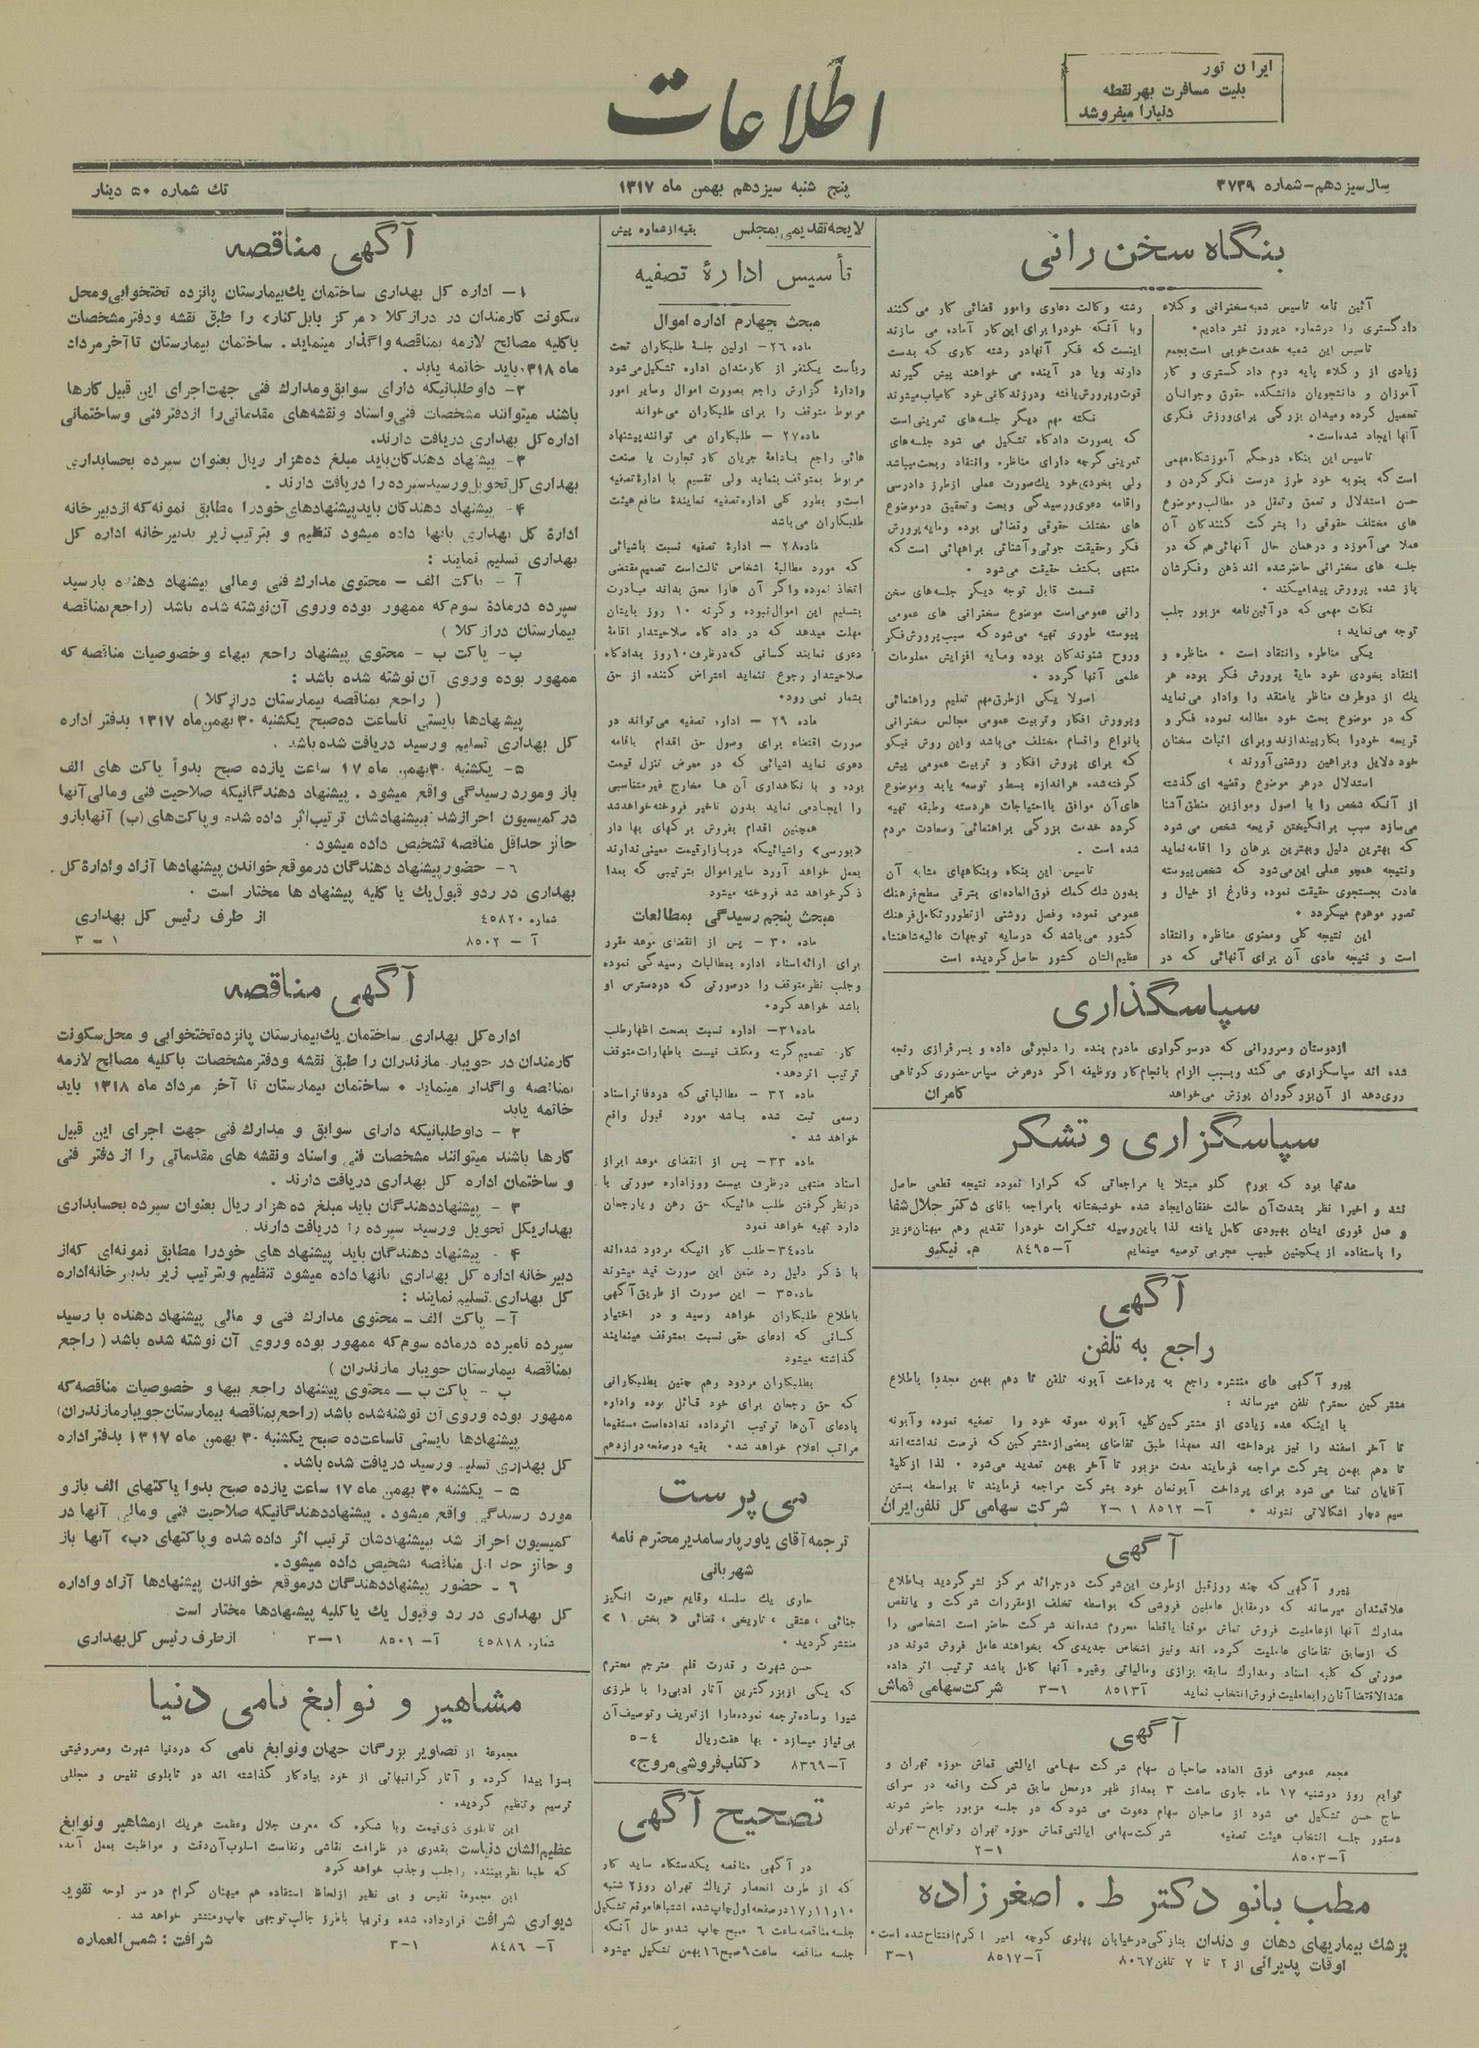 ایران تور
بلیت مسافرت بهر نقطه
دنیارا میفروشد
اطلاعات
سال سیزدهم - شماره ۳۷۳۹
پنج شنبه سیزدهم بهمن ماه ۱۳۱۷
تك شماره ۵۰ دینار
بنگاه سخن رانی
آئین نامه تاسیس شعبه سخنرانی وکلاء
دادگستری را درشماره دیروز نشر دادیم.
تاسیس این شعبه خدمت خوبی است بجمع
زیادی از وکلاء پایه دوم دادگستری و کار
آموزان و دانشجویان دانشکده حقوق وجوانان
تحصیل کرده ومیدان بزرگی برای ورزش فکری
آنها ایجاد شده است.
تاسیس این بنگاه درحکم آموزشگاه مهمی
است که بنوبه خود طرز درست فکر کردن و
حسن استدلال و تعمق وتعقل در مطالب وموضوع
های مختلف حقوقی را بشرکت کنندگان آن
عملا می‌آموزد و درهمان حال آنهائی هم که در
جلسه های سخنرانی حاضر شده اند ذهن وفکرشان
باز شده پرورش پیدا میکند.
نکات مهمی که در آئین نامه مزبور جلب
توجه می نماید:
یکی مناظره وانتقاد است. مناظره و
انتقاد بخودی خود مایهٔ پرورش فکر بوده هر
یك از دو طرف مناظر یا منتقد را وادار می نماید
که در موضوع بحث خود مطالعه نموده فکر و
قریحه خودرا بکار بیندازند وبرای اثبات سخنان
خود دلایل وبراهین روشنی آورند.
استدلال درهر موضوع وقضیه ای گذشته
از آنکه شخص را با اصول وموازین منطق آشنا
می سازد سبب برانگیختن قریحه شخص می شود
که بهترین دلیل وبهترین برهان را اقامه نماید
ونتیجه همچو عملی این می‌شود که شخص پیوسته
عادت بجستجوی حقیقت نموده وفارغ از خیال و
تصور موهوم میگردد.
این نتیجه کلی ومعنوی مناظره وانتقاد
است و نتیجه مادی آن برای آنهائی که در
رشته وکالت دعاوی وامور قضائی کار می کنند
ویا آنکه خودرا برای این کار آماده می سازند
اینست که فکر آنها در رشته کاری که بدست
دارند ویا در آینده می خواهند پیش گیرند
قوت وپرورش یافته ودر زندگانی خود کامیاب میشوند
نکته مهم دیگر جلسه‌های تمرینی است
که بصورت دادگاه تشکیل می شود جلسه‌های
تمرینی گرچه دارای مناظره وانتقاد وبحث میباشد
ولی بخودی خود یك صورت عملی از طرز دادرسی
واقامه دعوی ورسیدگی وبحث و تحقیق در موضوع
های مختلف حقوقی وقضائی بوده ومایه پرورش
فکر وحقیقت جوئی وآشنائی براههائی است که
منتهی بکشف حقیقت می شود.
قسمت قابل توجه دیگر جلسه‌های سخن
رانی عمومی است موضوع سخنرانی های عمومی
پیوسته طوری تهیه می شود که سبب پرورش فکر
وروح شنوندگان بوده ومایه افزایش معلومات
علمی آنها گردد.
اصولا یکی از طرق مهم تعلیم وراهنمائی
وپرورش افکار وتربیت عمومی مجالس سخنرانی
بانواع واقسام مختلف می باشد واین روش نیکو
که برای پروش افکار و تربیت عمومی پیش
گرفته شده هراندازه بسط و توسعه یابد وموضوع
های آن موافق با احتیاجات هر دسته وطبقه تهیه
گردد خدمت بزرگی براهنمائی وسعادت مردم
شده است.
تاسیس این بنگاه وبنگاههای مشابه آن
بدون شك کمك فوق العاده‌ای بترقی سطح فرهنگ
عمومی نموده وفصل روشنی از تطور وتکامل فرهنگ
کشور می باشد که در سایه توجهات عالیه شاهنشاه
عظیم‌الشان کشور حاصل گردیده است
سپاسگذاری
ازدوستان وسرورانی که درسوگواری مادرم بنده را دلجوئی داده و بسرفرازی رنجه
شده اند سپاسگزاری می کند وبسبب الزام بانجام کار ووظیفه اگر درعرض سپاس حضوری کوتاهی
روی دهد از آن بزرگوران پوزش می خواهد کامران
سپاسگزاری و تشکر
مدتها بود که بورم گلو مبتلا با مراجعاتی که کرارا نموده نتیجه قطعی حاصل
نشد و اخیرا نظر بشدت آن حالت خفقان ایجاد شده خوشبختانه بامراجعه باقای دکتر جلال شفا
و عمل فوری ایشان بهبودی کامل یافته لذا باین وسیله تشکرات خودرا تقدیم وهم میهنان عزیز
را باستفاده از یکچنین طبیب مجربی توصیه مینمایم آ-۸۴۹۵ م. نیکپو
آگهی
راجع به تلفن
پیرو آگهی های منتشره راجع به پرداخت آبونه تلفن تا دهم بهمن مجددا باطلاع
مشترکین محترم تلفن میرساند:
با اینکه عده زیادی از مشترکین کلیه آبونه معوقه خود را تصفیه نموده وآبونه
تا آخر اسفند را نیز پرداخته اند معهذا طبق تقاضای بعضی از مشترکین که فرصت نداشته‌اند
تا دهم بهمن بشرکت مراجعه فرمایند مدت مزبور تا آخر بهمن تمدید می شود. لذا از کلیهٔ
آقایان تمنا می شود برای پرداخت آبونمان خود بشرکت مراجعه فرمایند تا بواسطه بستن
سیم دچار اشکالاتی نشوند. آ-۸۵۱۲ ۱-۲ شرکت سهامی کل تلفن ایران
آگهی
پیرو آگهی که چند روز قبل از طرف این شرکت در جرائد مرکز نشر گردید باطلاع
علاقمندان میرساند که درمقابل عاملین فروشی که بواسطه تخلف از مقررات شرکت و یا نقص
مدارك آنها از عاملیت فروش قماش موقتا یا قطعا محروم شده‌اند شرکت حاضر است اشخاصی را
که از سابق تقاضای عاملیت کرده اند ونیز اشخاص جدیدی که بخواهند عامل فروش شوند در
صورتی که کلیه اسناد ومدارك سابقه بزازی ومالیاتی وغیره آنها کامل باشد ترتیب اثر داده
عندالاقتضا آنان را بعاملیت فروش انتخاب نماید آ ۸۵۱۳ ۱-۳ شرکت سهامی قماش
آگهی
مجمع عمومی فوق العاده صاحبان سهام شرکت سهامی ایالتی قماش حوزه تهران و
توابع روز دوشنبه ۱۷ ماه جاری ساعت ۳ بعداز ظهر درمحل سابق شرکت واقعه در سرای
حاج حسن تشکیل می شود از صاحبان سهام دعوت می شود که در جلسه مزبور حاضر شوند
دستور جلسه انتخاب هیئت تصفیه شرکت سهامی ایالتی قماش حوزه تهران وتوابع - تهران
آ-۸۵۰۳ ۱-۲
مطب بانو دکتر ط. اصغرزاده
پزشك بیماریهای دهان و دندان بتازگی در خیابان پهلوی کوچه امیر اکرم افتتاح شده است.
اوقات پذیرائی از ۲ تا ۷ تلفن ۸۰۶۷ آ-۸۵۱۷ ۱-۳
لایحه تقدیمی بمجلس
بقیه از شماره پیش
تأسیس ادارهٔ تصفیه
مبحث چهارم اداره اموال
ماده ۲۶ - اولین جلسهٔ طلبکاران تحت
ریاست یکنفر از کارمندان اداره تشکیل می شود
وادارهٔ گزارش راجع بصورت اموال وسایر امور
مربوط متوقف را برای طلبکاران می خواند
ماده ۲۷ - طلبکاران می توانند پیشنهاد
هائی راجع بادامهٔ جریان کار تجارت یا صنعت
مربوط بمتوقف بنماید ولی تقسیم با ادارهٔ تصفیه
است و بطور کلی اداره تصفیه نمایندهٔ منافع هیئت
طلبکاران می باشد
ماده ۲۸ - ادارهٔ تصفیه نسبت باشیائی
که مورد مطالبهٔ اشخاص ثالث است تصمیم مقتضی
اتخاذ نموده واگر آن هارا محق بداند مبادرت
بتسلیم این اموال نبوده و گرنه ۱۰ روز بایشان
مهلت میدهد که در دادگاه صلاحیتدار اقامهٔ
دعوی نمایند کسانی که در ظرف ۱۰ روز بدادگاه
صلاحیتدار رجوع ننماید اعتراض کننده از حق
بشمار نمی رود.
ماده ۲۹ - اداره تصفیه می تواند در
صورت اقتضاء برای وصول حق اقدام باقامه
دعوی نماید اشیائی که در معرض تنزل قیمت
بوده و با نگاهداری آن ها مخارج غیر متناسبی
را ایجاد می نماید بدون تاخیر فروخته خواهد شد
همچنین اقدام بفروش برگهای بها دار
«بورسی» واشیائیکه در بازار قیمت معینی دارند
بعمل خواهد آورد سایر اموال بترتیبی که بعدا
ذکر خواهد شد فروخته میشود
مبحث پنجم رسیدگی بمطالعات
ماده ۳۰ - پس از انقضای موعد مقرر
برای ارائه اسناد اداره بمطالبات رسیدگی نموده
وجلب نظر متوقف را در صورتی که دردسترس او
باشد خواهد کرد.
ماده ۳۱ - اداره نسبت بصحت اظهار طلب
کار تصمیم گرفته ومکلف نیست باظهارات متوقف
ترتیب اثر دهد.
ماده ۳۲ - مطالباتی که دردفاتر اسناد
رسمی ثبت شده باشد مورد قبول واقع
خواهد شد.
ماده ۳۳ - پس از انقضای موعد ابراز
اسناد منتهی درظرف بیست روز اداره صورتی با
درنظر گرفتن طلب هائیکه حق رهن و یا رجعان
دارد تهیه خواهد نمود
ماده ۳۴ - طلب کارانیکه مردود شده‌اند
با ذکر دلیل رد ضمن این صورت قید میشوند
ماده ۳۵ - این صورت از طریق آگهی
باطلاع طلبکاران خواهد رسید و در اختیار
کسانی که ادعای حقی نسبت بمتوقف مینمایند
گذاشته میشود
بطلبکاران مردود وهم چنین بطلبکارانی
که حق رجعان برای خود قائل بوده واداره
بادعای آن‌ها ترتیب اثر داده نداده است مستقیما
مراتب اعلام خواهد شد. بقیه در صفحه دوازدهم
سی پرست
ترجمه آقای یاور پارسا مدیر محترم نامه
شهربانی
حاوی یك سلسله وقایع حیرت انگیز
جنائی، عشقی، تاریخی، قضائی «بخش ۱»
منتشر گردید.
حسن شهرت و قدرت قلم مترجم محترم
که یکی از بزرگترین آثار ادبی را با طرزی
شیوا وساده ترجمه نموده مارا از تعریف وتوصیف آن
بی نیاز میسازد. بها هفت ریال ۴-۵
آ-۸۳۶۹ «کتاب فروشی مروج»
تصحیح آگهی
در آگهی مناقصه یکدستگاه ساید کار
که از طرف انحصار تریاك تهران روز ۲ شنبه
۱۰ و ۱۱ و ۱۷ در صفحه اول چاپ شده اشتباها موقع تشکیل
جلسه مناقصه ساعت ۶ صبح چاپ شده و حال آنکه
جلسه مناقصه ساعت ۹ صبح ۱۶ بهمن تشکیل میشود
آگهی مناقصه
۱- اداره کل بهداری ساختمان یك بیمارستان پانزده تختخوابی ومحل
سکونت کارمندان در درازکلا «مرکز بابل کنار» را طبق نقشه ودفتر مشخصات
باکلیه مصالح لازمه بمناقصه واگذار مینماید. ساختمان بیمارستان تا آخر مرداد
ماه ۱۳۱۸ باید خاتمه یابد.
۲- داوطلبانیکه دارای سوابق ومدارك فنی جهت اجرای این قبیل کارها
باشند میتوانند مشخصات فنی واسناد ونقشه‌های مقدماتی را از دفتر فنی وساختمانی
اداره کل بهداری دریافت دارند.
۳- پیشنهاد دهندگان باید مبلغ ده هزار ریال بعنوان سپرده بحسابداری
بهداری کل تحویل ورسید سپرده را دریافت دارند.
۴- پیشنهاد دهندگان باید پیشنهادهای خودرا مطابق نمونه که از دبیرخانه
ادارهٔ کل بهداری بانها داده میشود تنظیم و بترتیب زیر بدبیرخانه اداره کل
بهداری تسلیم نمایند:
آ - پاکت الف - محتوی مدارك فنی ومالی پیشنهاد دهنده بارسید
سپرده درمادهٔ سوم که ممهور بوده وروی آن نوشته شده باشد (راجع بمناقصه
بیمارستان درازکلا)
ب- پاکت ب - محتوی پیشنهاد راجع ببهاء وخصوصیات مناقصه که
ممهور بوده وروی آن نوشته شده باشد:
(راجع بمناقصه بیمارستان درازکلا)
پیشنهادها بایستی تاساعت ده صبح یکشنبه ۳۰ بهمن ماه ۱۳۱۷ بدفتر اداره
کل بهداری تسلیم ورسید دریافت شده باشد.
۵- یکشنبه ۳۰ بهمن ماه ۱۷ ساعت یازده صبح بدوآ پاکت های الف
باز ومورد رسیدگی واقع میشود. پیشنهاد دهندگانیکه صلاحیت فنی ومالی آنها
درکمیسیون احراز شد پیشنهادشان ترتیب اثر داده شده و پاکت‌های (ب) آنها باز و
حائز حداقل مناقصه تشخیص داده میشود.
۶- حضور پیشنهاد دهندگان درموقع خواندن پیشنهادها آزاد وادارهٔ کل
بهداری در ردو قبول یك یا کلیه پیشنهاد ها مختار است.
شماره ۴۵۸۲۰ از طرف رئیس کل بهداری
آ-۸۵۰۲ ۱-۳
آگهی مناقصه
اداره کل بهداری ساختمان یك بیمارستان پانزده تختخوابی و محل سکونت
کارمندان در جویبار مازندران را طبق نقشه ودفتر مشخصات باکلیه مصالح لازمه
بمناقصه واگذار مینماید. ساختمان بیمارستان تا آخر مرداد ماه ۱۳۱۸ باید
خاتمه یابد
۲- داوطلبانیکه دارای سوابق و مدارك فنی جهت اجرای این قبیل
کارها باشند میتوانند مشخصات فنی واسناد ونقشه های مقدماتی را از دفتر فنی
و ساختمان اداره کل بهداری دریافت دارند.
۳- پیشنهاد دهندگان باید مبلغ ده هزار ریال بعنوان سپرده بحسابداری
بهداری کل تحویل ورسید سپرده را دریافت دارند.
۴- پیشنهاد دهندگان باید پیشنهاد های خودرا مطابق نمونه‌ای که از
دبیرخانه اداره کل بهداری بانها داده میشود تنظیم وبترتیب زیر بدبیرخانه اداره
کل بهداری تسلیم نمایند:
آ- پاکت الف - محتوی مدارك فنی و مالی پیشنهاد دهنده با رسید
سپرده نامبرده درماده سوم که ممهور بوده وروی آن نوشته شده باشد (راجع
بمناقصه بیمارستان جویبار مازندران)
ب - پاکت ب - محتوی پیشنهاد راجع ببها و خصوصیات مناقصه که
ممهور بوده وروی آن نوشته شده باشد (راجع بمناقصه بیمارستان جویبار مازندران)
پیشنهادها بایستی تاساعت ده صبح یکشنبه ۳۰ بهمن ماه ۱۳۱۷ بدفتر اداره
کل بهداری تسلیم ورسید دریافت شده باشد.
۵- یکشنبه ۳۰ بهمن ماه ۱۷ ساعت یازده صبح بدوا پاکتهای الف باز و
مورد رسیدگی واقع میشود. پیشنهاد دهندگانیکه صلاحیت فنی ومالی آنها در
کمیسیون احراز شد پیشنهادشان ترتیب اثر داده شده و پاکتهای «ب» آنها باز
و حائز حداقل مناقصه تشخیص داده میشود.
۶- حضور پیشنهاد دهندگان درموقع خواندن پیشنهادها آزاد واداره
کل بهداری در رد وقبول یك یا کلیه پیشنهادها مختار است
شماره ۴۵۸۱۸ آ-۸۵۰۱ ۱-۳ از طرف رئیس کل بهداری
مشاهیر و نوابغ نامی دنیا
مجموعهٔ از تصاویر بزرگان جهان ونوابغ نامی که دردنیا شهرت ومعروفیتی
بسزا پیدا کرده و آثار گرانبهائی از خود بیادگار گذاشته اند در تابلوی نفیس و مجللی
ترسیم وتنظیم گردیده.
این تابلوی ذی قیمت وبا شکوه که معرف جلال وعظمت هریك از مشاهیر ونوابغ
عظیم‌الشان دنیاست بقدری در ظرافت نقاشی ونفاست اسلوب آن دقت و مواظبت بعمل آمده
که طبعا نظر بیننده را جلب وجذب خواهد کرد
این مجموعهٔ نفیس و بی نظیر از لحاظ استفاده هم میهنان گرام در سر لوحه تقویم
دیواری شرافت قرار داده شده وقریبا باطرز جالب توجهی چاپ ومنتشر خواهد شد.
آ-۸۴۸۶ ۱-۳ شرافت: شمس العماره